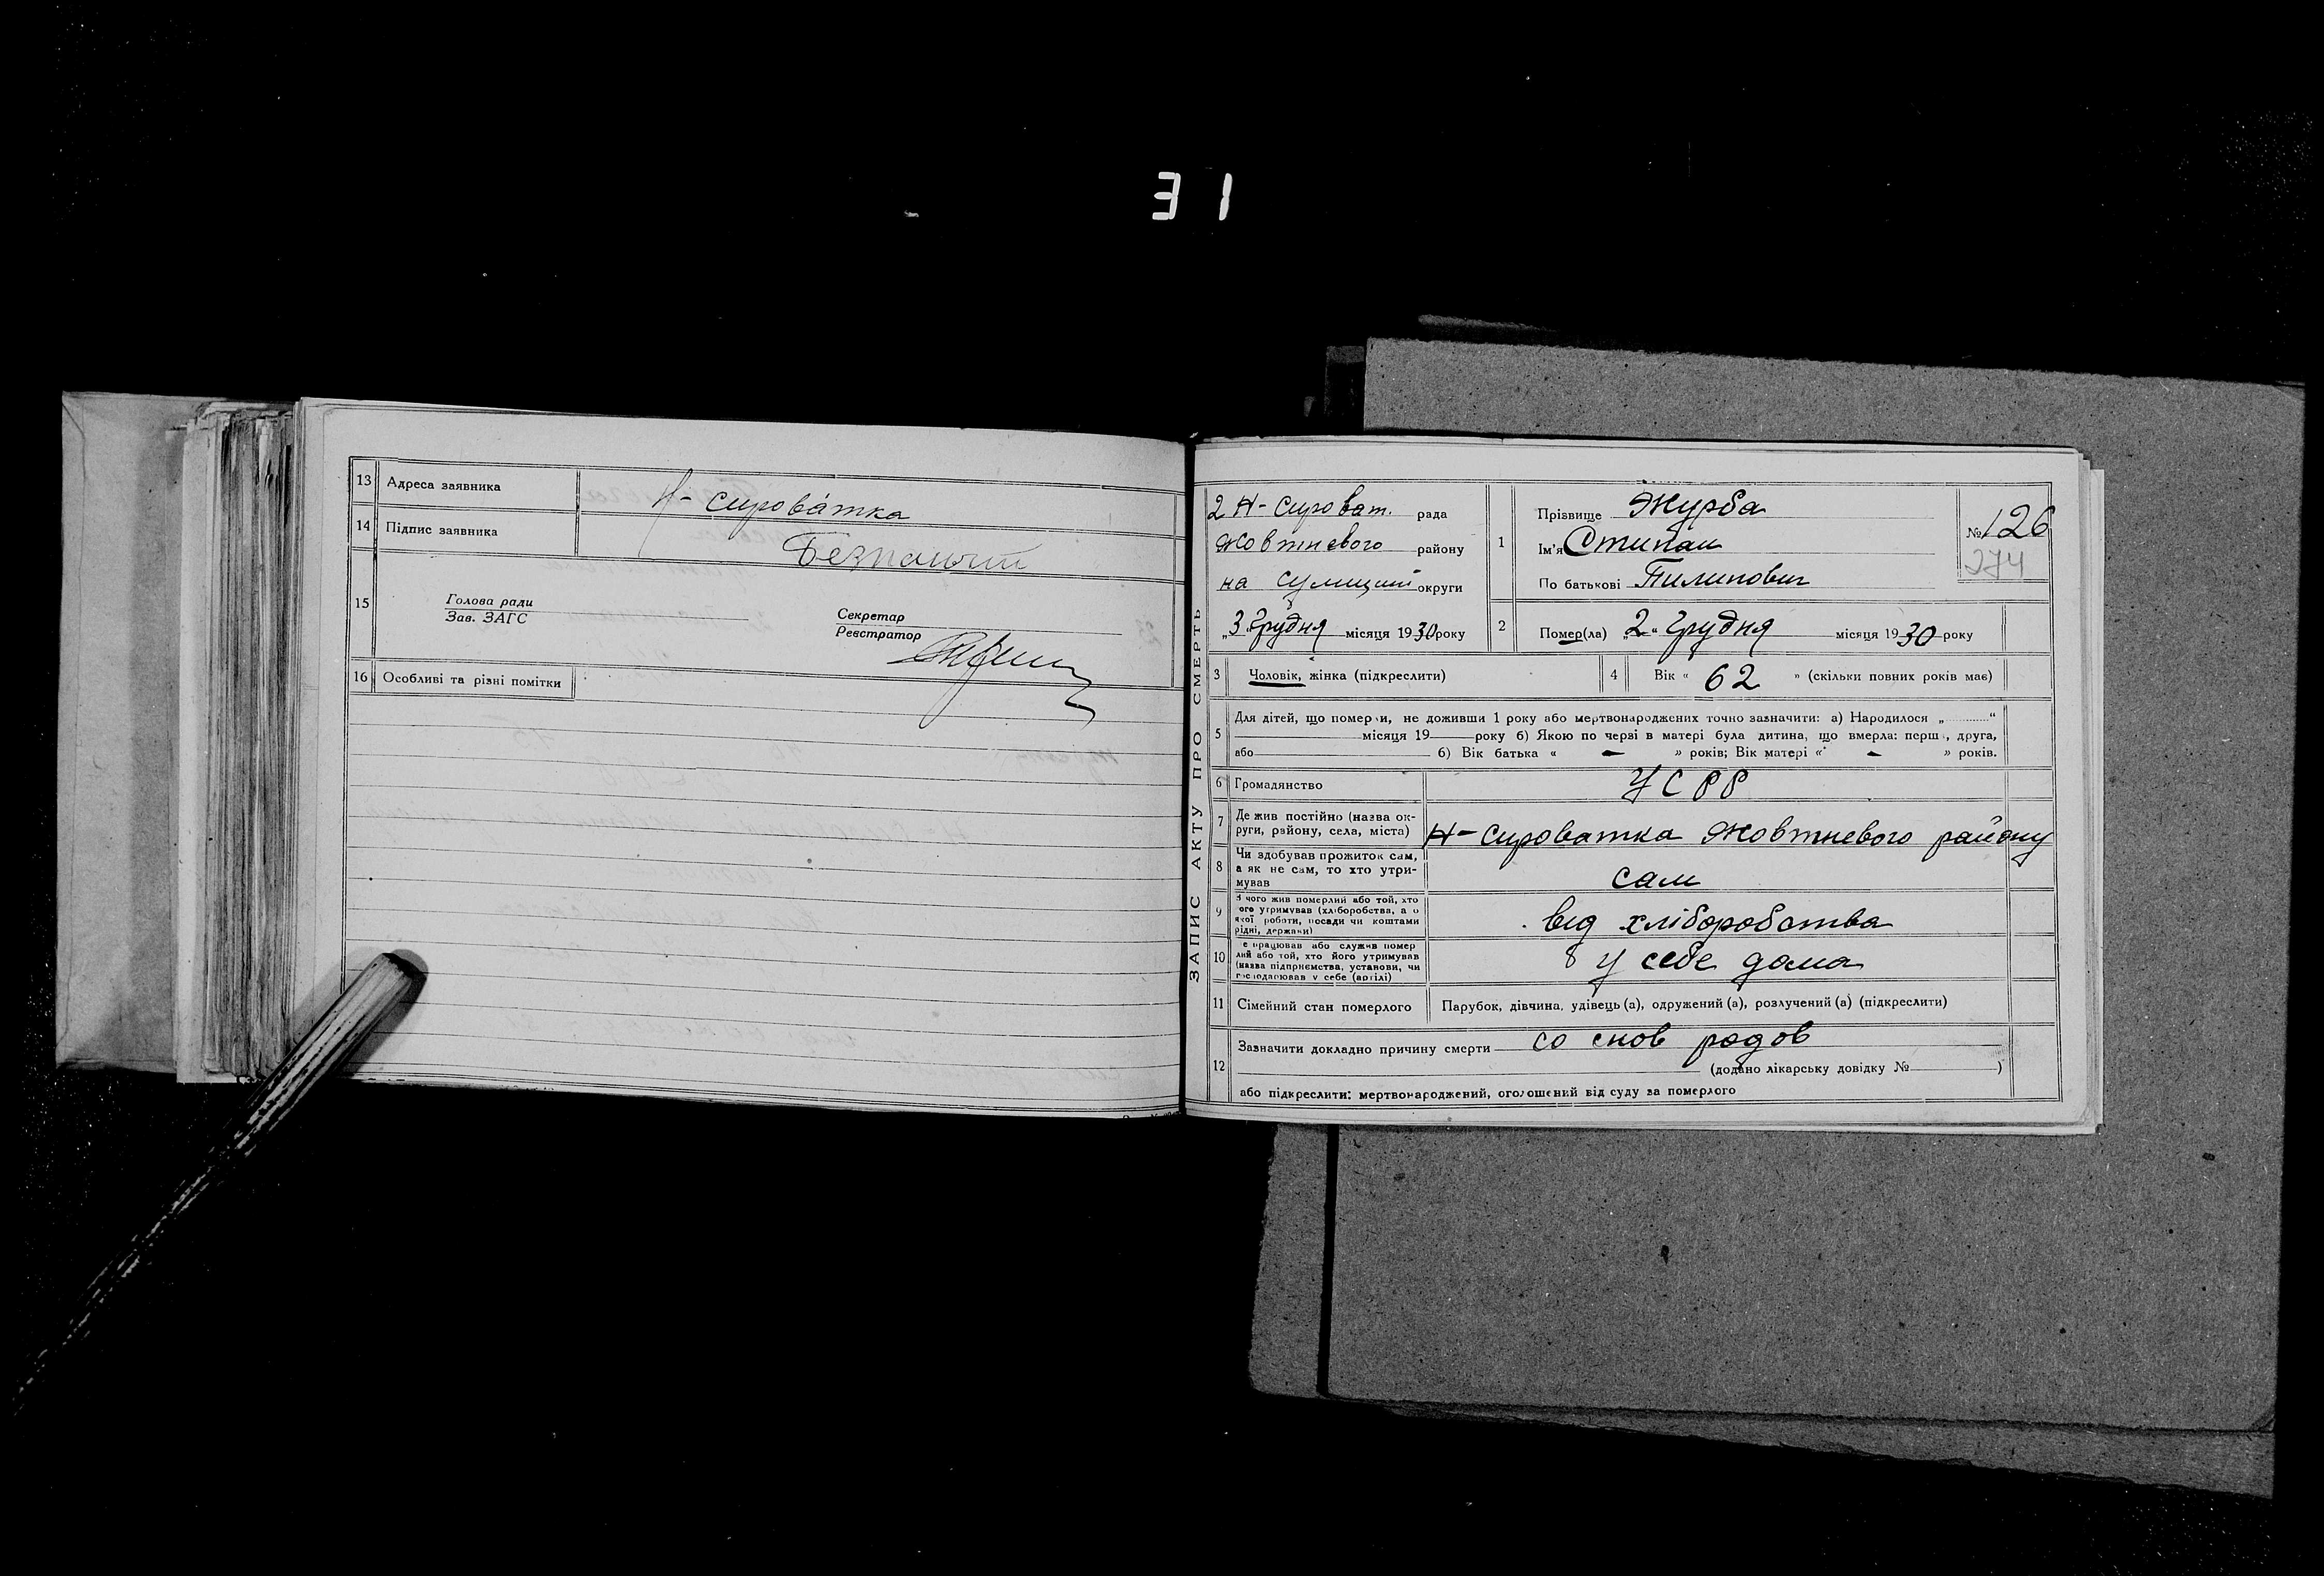 31
13 Адреса заявника Н- Сироватка
14 Підпис заявника
15 Голова ради
Зав. ЗАГС
Секретар
Реєстратор
16 Особливі та різні помітки
ЗАПИС АКТУ ПРО СМЕРТЬ
2 Н- Сироват. рада
Жовтневого району
на округи
„3„ Грудня місяця 1930 року
1 Прізвище Журба
Ім'я Стипан
По батькові Пилипович
№ 126
274
2 Помер(ла) „2“ Грудня місяця 1930 року
3 Чоловік, жінка (підкреслити)
4 Вік « 62 » (скільки повних років має)
5 Для дітей, що померли, не доживши 1 року або мертвонароджених точно зазначити: а) Народилося „ “
місяця 19 року б) Якою по черзі в матері була дитина, що вмерла: перша, друга,
або б) Вік батька « - » років; Вік матері « - » років.
6 Громадянство УСРР
7 Де жив постійно (назва ок-
руги, району, села, міста) Н- Сироватка Жовтневого району
8 Чи здобував прожиток сам,
а як не сам, то хто утри-
мував сам
9 З чого жив померлий або той, хто
його утримував (хліборобства, а о
якої роботи, посади чи коштами
рідні, держави) від хліборобства
10 е працював або служив помер
лий або той, хто його утримував
(назва підприємства, установи, чи
господарював у себе (артілі) у себе дома
11 Сімейний стан померлого Парубок, дівчина, удівець (а), одружений (а), розлучений (а) (підкреслити)
12 Зазначити докладно причину смерти
(додано лікарську довідку № )
або підкреслити: мертвонароджений, оголошений від суду за померлого